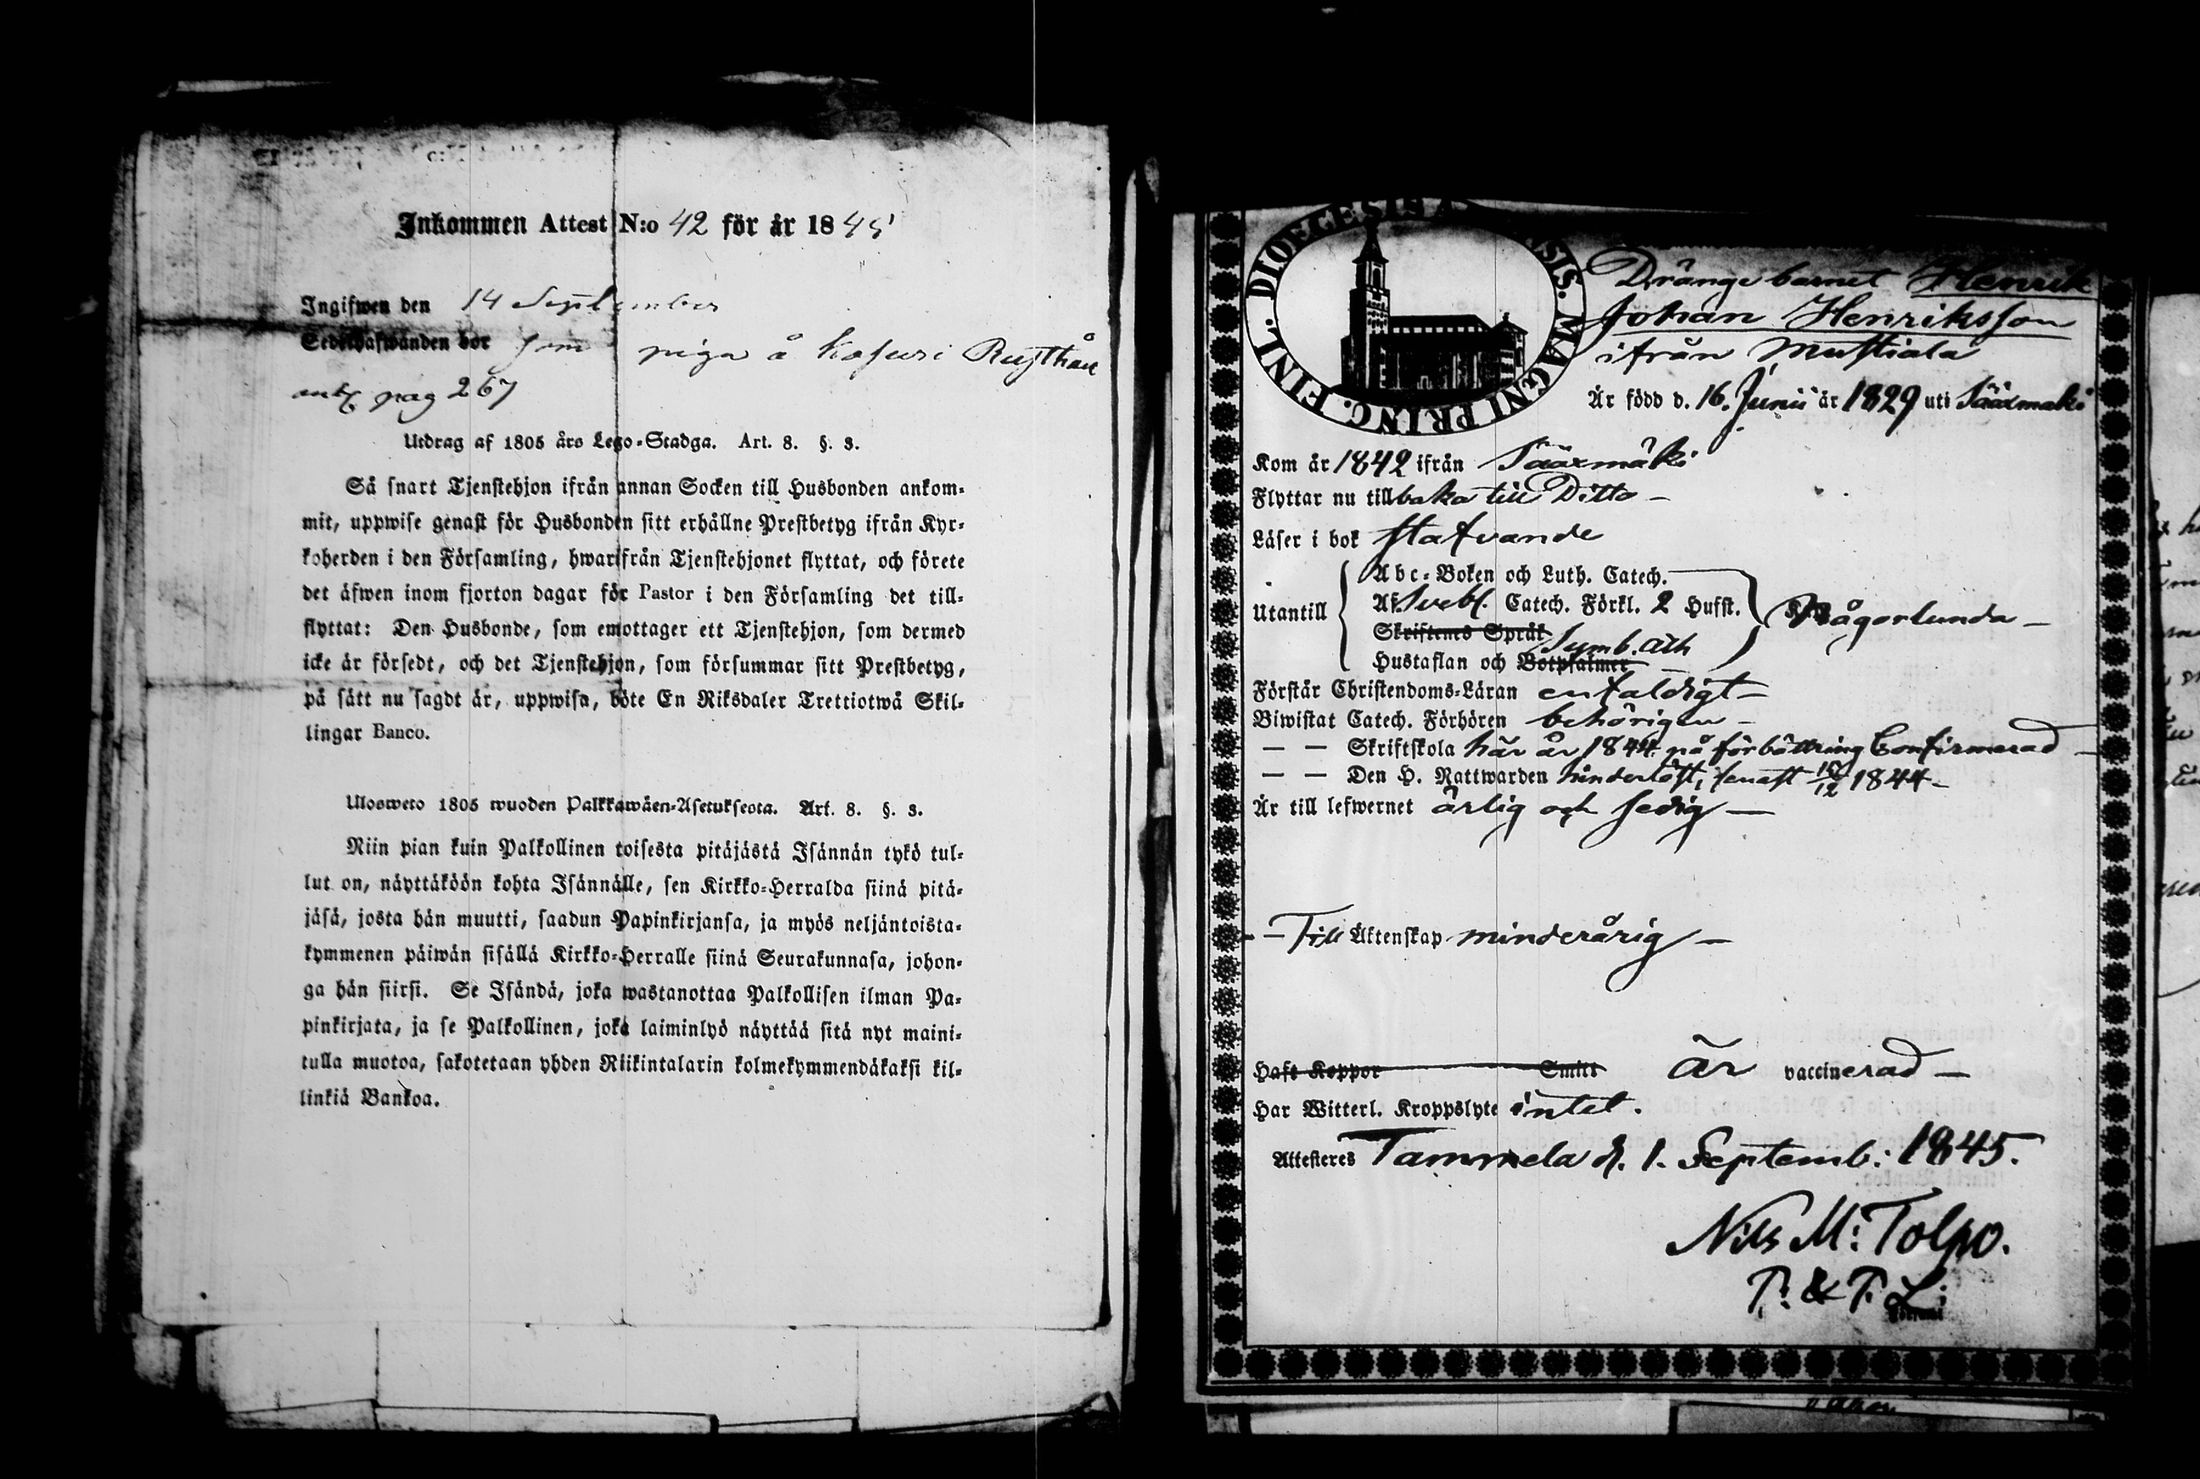 Inkommen Attest N:o 42 för år 1845
Ingifwen den 14 September
Sedelhafwanden bor som piga å Kasuri Rusthåll
antx pag 267
Utdrag af 1805 års Lego-Stadga. Art. 8. §. 3.
Så snart Tjenstehjon ifrån annan Socken till Husbonden ankom-
mit, uppwise genast för Husbonden sitt erhållne Prestbetyg ifrån Kyr-
koherden i den Församling, hwarifrån Tjenstehjonet flyttat, och förete
det äfwen inom fjorton dagar för Pastor i den Församling det till-
flyttat: Den Husbonde, som emottager ett Tjenstehjon, som dermed
icke är försedt, och det Tjenstehjon, som försummar sitt Prestbetyg,
på sätt nu sagdt är, uppwisa, böte En Riksdaler Trettiotwå Skil-
lingar Banco.
Ulosweto 1805 wuoden Palkkawäen-Asetuksesta. Art. 8. §. 3.
Niin pian kuin Palkollinen toisesta pitäjästä Isännän tykö tul-
lut on, näyttäköön kohta Isännälle, sen Kirkko-Herralda siinä pitä-
jäsä, josta hän muutti, saadun Papinkirjansa, ja myös neljäntoista-
kymmenen päiwän sisällä Kirkko-Herralle siinä Seurakunnasa, johon-
ga hän siirsi. Se Isändä, joka wastanottaa Palkollisen ilman Pa-
pinkirjata, ja se Palkollinen, joka laiminlyö näyttää sitä nyt maini-
tulla muotoa, sakotetaan yhden Riikintalarin kolmekymmendäkaksi kil-
linkiä Bankoa.
FINL. DIOECESIS MAGNI PRINC.
Drängebarnet Henrik
Johan Henriksson
ifrån Mustiala
Är född d. 16. Junii år 1829 uti Sääxmäki
Kom år 1842 ifrån Sääxmäki
Flyttar nu tillbaka till Ditto –
Läser i bok stafvande
Abc-Boken och Luth. Catech.
Utantill Af Svebl. Catech. Förkl. 2 Hufst. Någorlunda –
Skriftenes Språk Symb. Ath
Hustaflan och Botpsalmer –
Förstår Christendoms-Läran enfaldigt –
Biwistat Catech. Förhören behörigen –
— — Skriftskola här år 1844 på förbättring Confirmerad –
— — Den H. Nattwarden hinderlöst, senast 1844 –
Är till lefwernet ärlig och sedig –
– Till Äktenskap minderårig –
Haft Koppor Smitt är vaccinerad –
Har Witterl. Kroppslyte intet.
Attesteres Tammela d. 1. Septemb: 1845.
Nils M: Tolpo.
P: & P. L: